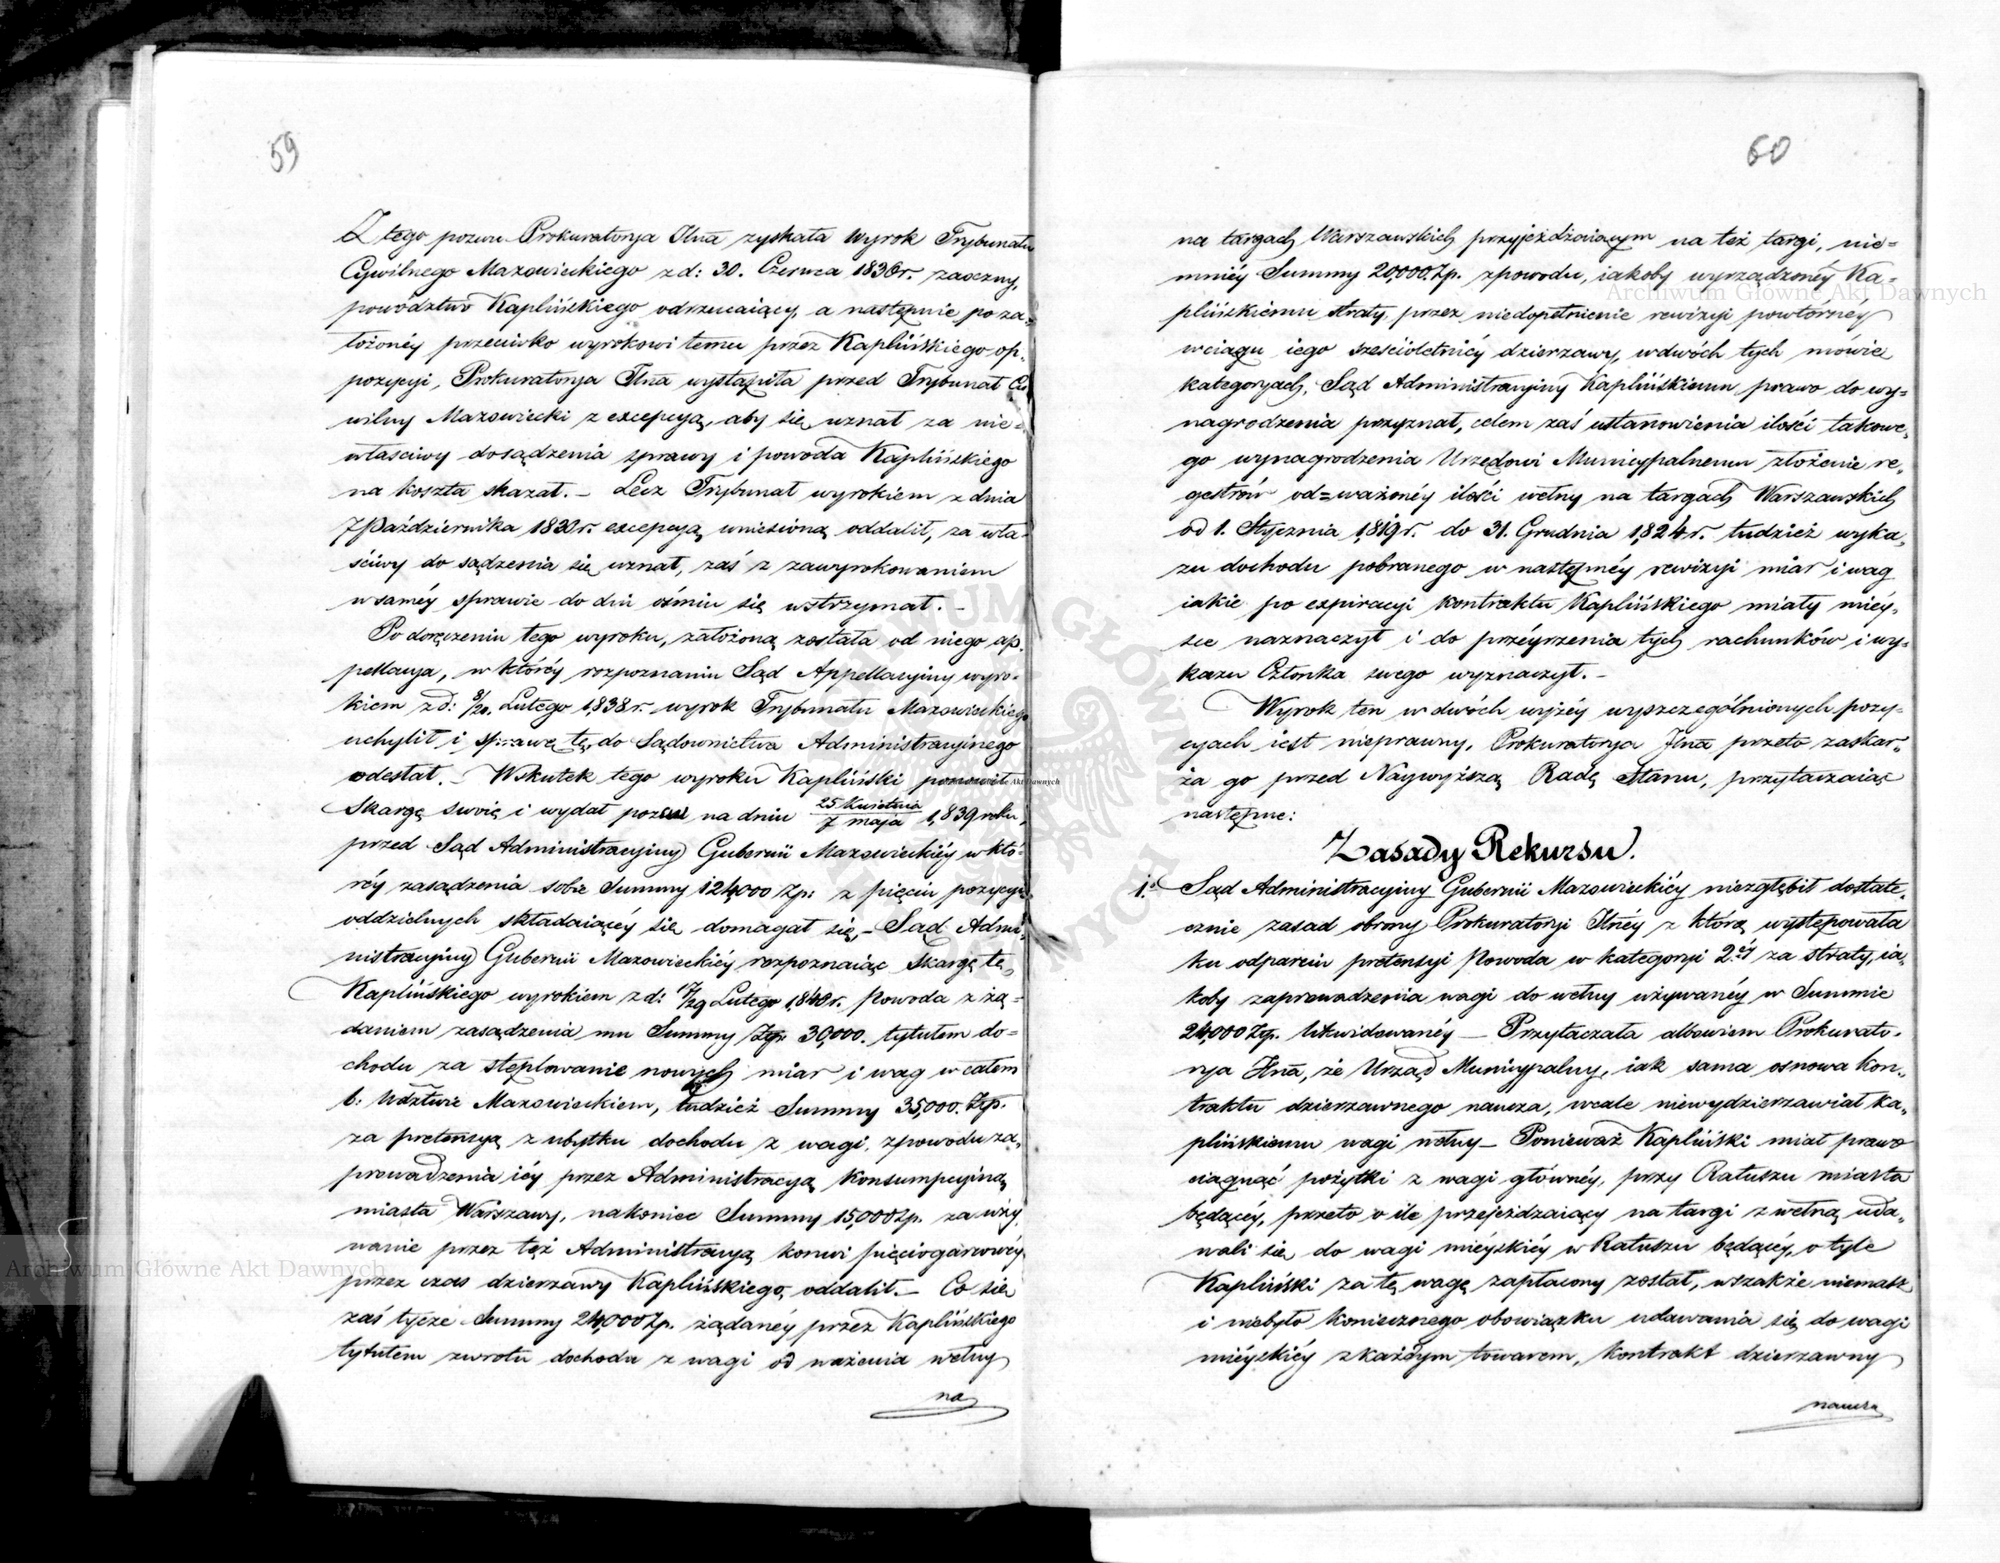 59
Z tego pozwu Prokuratorya Jlna zyskała Wyrok Trybunału
Cywilnego Mazowieckiego z d: 30. Czerwca 1836r. zaoczny,
powództwo Kaplińskiego odrzucaiący, a następnie po za-
łożonéy przeciwko wyrokowi temu przez Kaplińskiego op-
pozycyi, Prokuratorya Jlna wystąpiła przed Trybunał Cy
wilny Mazowiecki z excepcyą, aby się uznał za nie-
właściwy do sądzenia sprawy i powoda Kaplińskiego
na koszta skazał. – Lecz Trybunał wyrokiem z dnia
7 Października 1830r. excepcyą wniesioną oddalił, za wła-
ściwy do sądzenia się uznał, zaś z zawyrokowaniem
w saméy sprawie do dni ośmiu się wstrzymał. –
Po doręczeniu tego wyroku, założoną została od niego ap-
pellacya, w któréy rozpoznaniu Sąd Appellacyiny wyro-
kiem z d: 8/20. Lutego 1,838r. wyrok Trybunału Mazowieckiego
uchylił i sprawę tę do Sądownictwa Administracyinego
odesłał. – Wskutek tego wyroku Kapliński ponowił
Skargę swoię i wydał pozew na dniu 25 Kwietnia / 7 maja 1,839 roku,
przed Sąd Administracyiny Gubernii Mazowieckiéy w któ-
réy zasądzenia sobie Summy 124,000 Zp: z pięciu pozycyi
oddzielnych składaiącéy się domagał się, – Sąd Admi-
nistracyiny Gubernii Mazowieckiéy rozpoznaiąc Skargę tę,
Kaplińskiego wyrokiem z d: 17/29 Lutego 1,840r. Powoda z żą-
daniem zasądzenia mu Summy Zp. 30,000. tytułem do-
chodu za steplowanie nowych miar i wag w całem
b: Wdztwie Mazowieckiem, tudzież Summy 35,000. Zp.
za pretensyą z ubytku dochodu z wagi, z powodu za-
prowadzenia iéy przez Administracyą Konsumpcyiną
miasta Warszawy, nakoniec Summy 15,000 Zp. za uży-
wanie przez też Administracyą konwi pięciogarcowéy
przez czas dzierzawy Kaplińskiego, oddalił. – Co się
zaś tycze Summy 24,000 Zp. żądanéy przez Kaplińskiego
tytułem zwrotu dochodu z wagi od ważenia wełny
na
60
na targach Warszawskich przyjeżdżaiącym na też targi, nie-
mniéy Summy 20,000. Zp. z powodu, iakoby wyrządzonéy Ka-
plińskiemu straty, przez niedopełnienie rewizyi powtornéy
w ciągu iego sześcioletniéy dzierzawy, w dwóch tych mówię
kategoryach, Sąd Administracyiny Kaplińskiemu prawo do wy-
nagrodzenia przyznał, celem zaś ustanowienia ilości takowe-
go wynagrodzenia Urzędowi Municypalnemu złożenie re-
gestrów od-ważonéy ilości wełny na targach Warszawskich
od 1. Stycznia 1,819r. do 31. Grudnia 1,824r. tudzież wyka-
zu dochodu pobranego w następnéy rewizyi miar i wag
iakie po expiracyi kontraktu Kaplińskiego miały miéy-
sce naznaczył i do przéyrzenia tych rachunków i wy-
kazu Członka swego wyznaczył. –
Wyrok ten w dwóch wyżéy wyszczególnionych pozy-
cyach iest nieprawny, Prokuratorya Jlna przeto zaskar-
ża go przed Naywyższą Radę Stanu, przytaczaiąc
następne:
Zasady Rekursu.
1.° Sąd Administracyiny Gubernii Mazowieckiéy niezgłębił dostate-
cznie zasad obrony Prokuratoryi Jlnéy z którą występowała
ku odparciu pretensyi Powoda w kategoryi 2éy za straty, ia-
koby zaprowadzenia wagi do wełny używanéy w Summie
24,000 Zp. likwidowanéy – Przytaczała albowiem Prokurato-
rya Jlna, że Urząd Municypalny, iak sama osnowa kon-
traktu dzierzawnego naucza, wcale niewydzierzawiał Ka-
plińskiemu wagi wełny – Ponieważ Kapliński miał prawo
ciągnąć pożytki z wagi główney, przy Ratuszu miasta
będącéy, przeto o ile przejeżdzaiący na targi z wełną uda-
wali się do wagi miéyskiéy w Ratuszu będącéy, o tyle
Kapliński za tę wagę zapłacony został, wszakże niemasz
i niebyło koniecznego obowiązku udawania się do wagi
miéyskiéy z każdym towarem, kontrakt dzierzawny
naucza
Archiwum Główne Akt Dawnych
Archiwum Główne Akt Dawnych